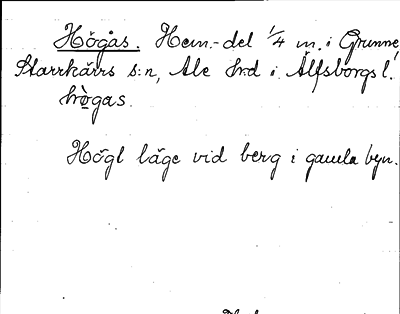 Högås. Hem.-del 1/4 m. i Grunne,
Starrkärrs s:n, Ale hrd i Älfsborgs l.
hògas.
Högl läge vid berg i gamla byn.